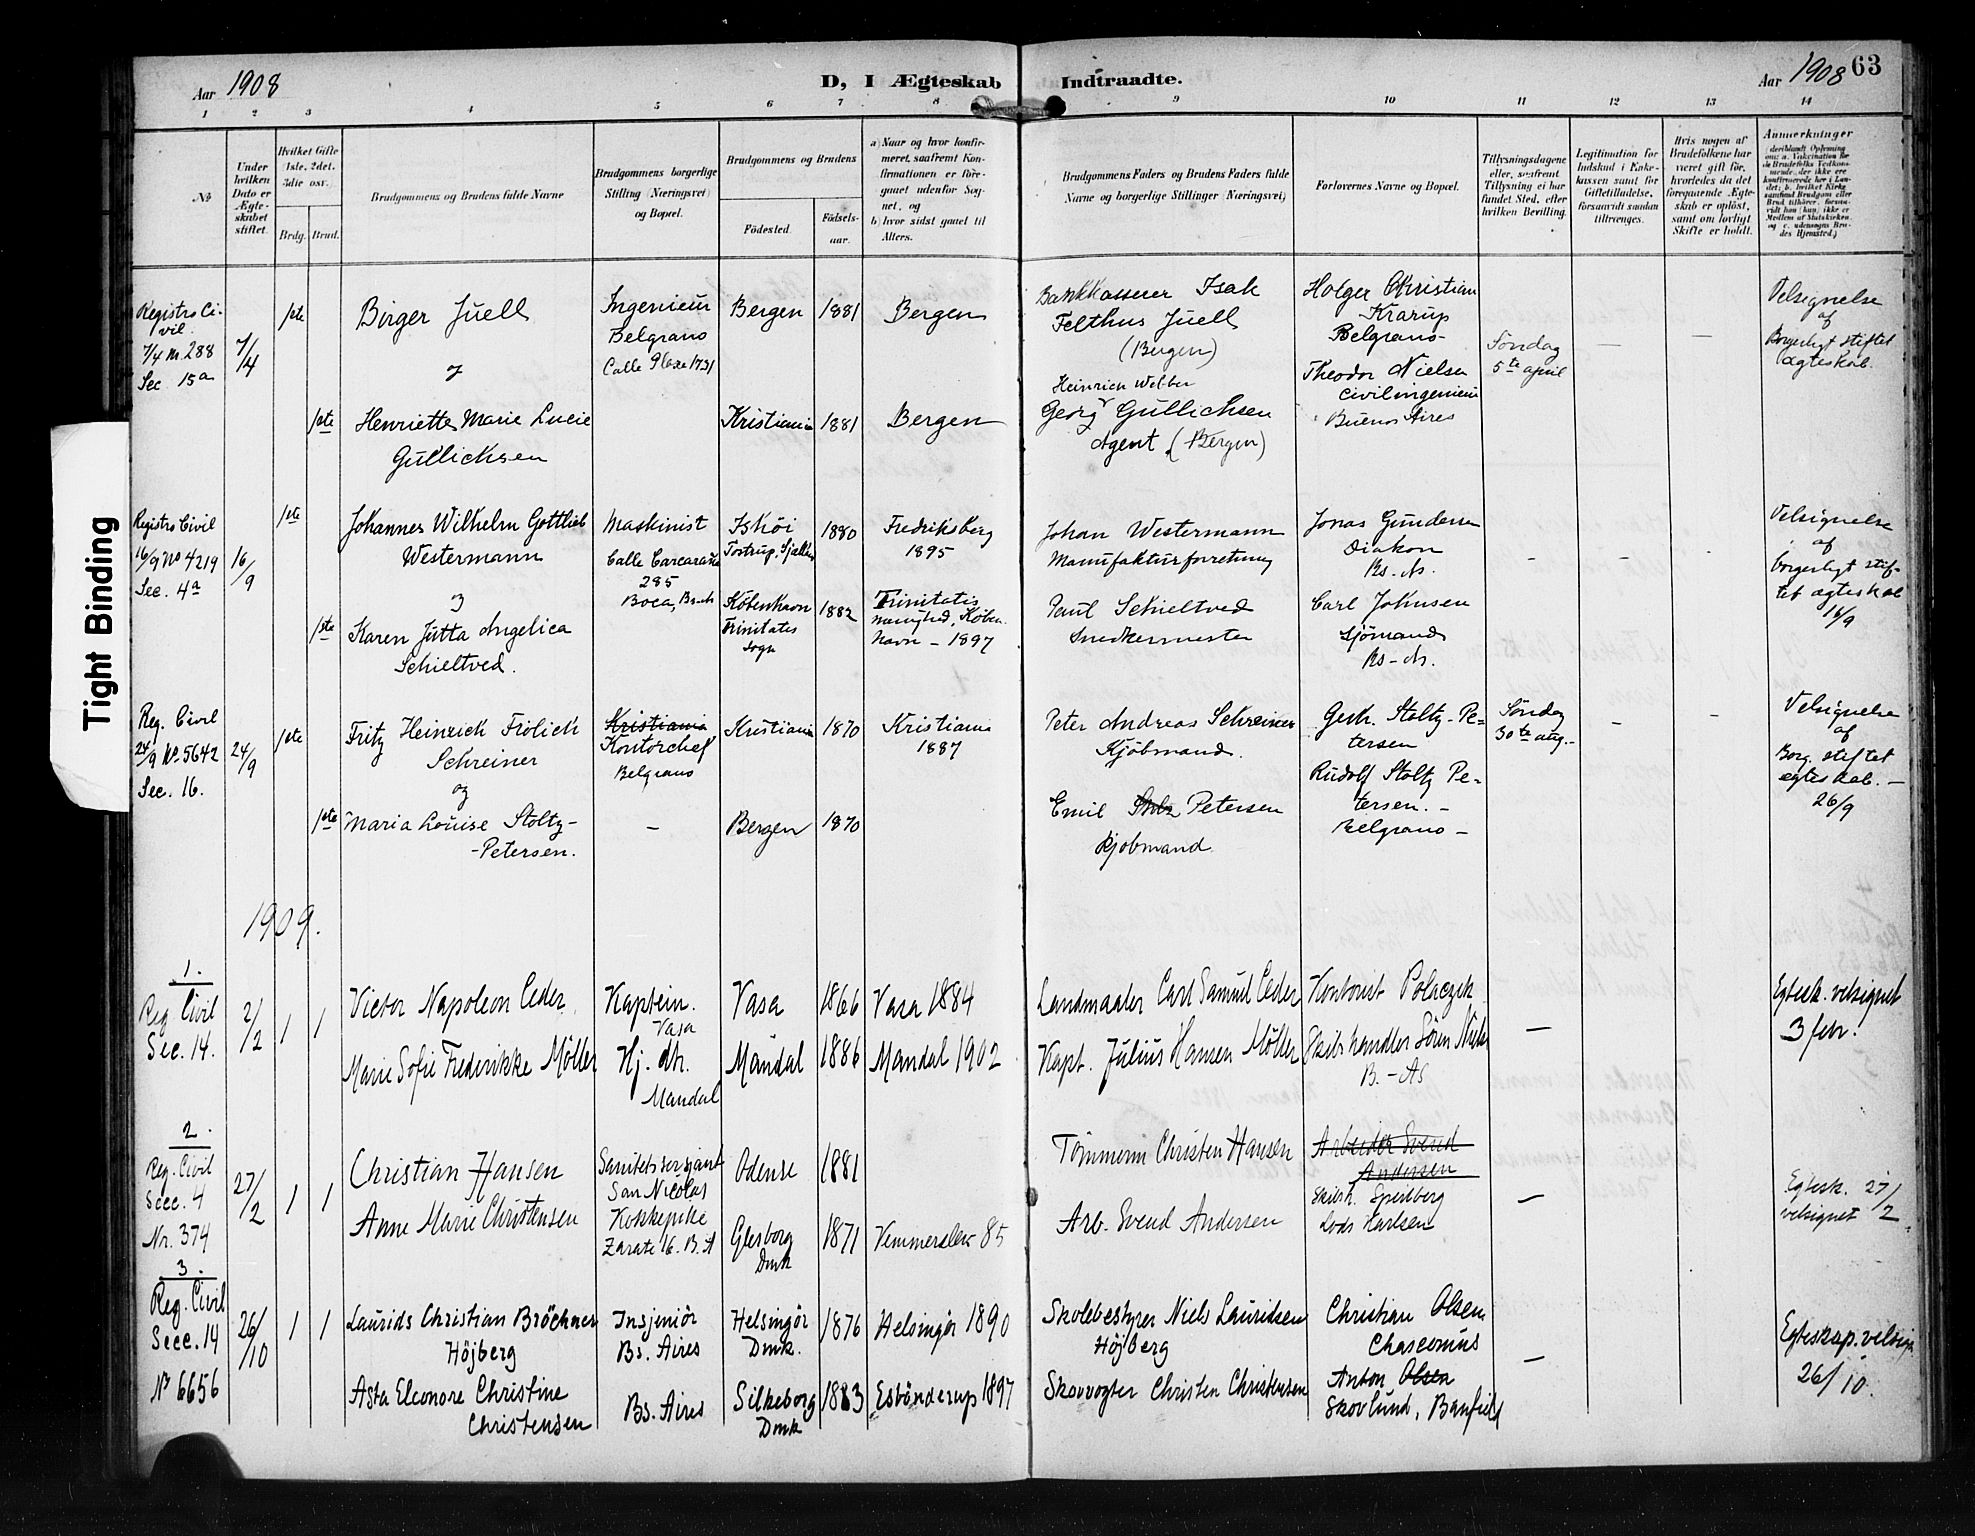 Aar 1908
D, I Ægteskab Indtraadte.
Aar 1908 63
1 2 3 4 5 6 7 8 9 10 11 12 13 14
№
Under hvilken Dato er Ægteskabet stiftet.
Hvilket Gifte 1ste, 2det, 3die osv.
Brdg. Brud.
Brudgommens og Brudens fulde Navne
Brudgommens borgerlige Stilling (Næringsvei) og Bopæl.
Brudgommens og Brudens
Födested.
Födselsaar.
a) Naar og hvor konfirmeret, saafremt Konfirmationen er foregaaet udenfor Sognet, og
b) hvor sidst gaaet til Alters.
Brudgommens Faders og Brudens Faders fulde Navne og borgerlige Stillinger (Næringsvei)
Forlovernes Navne og Bopæl.
Tillysningsdagene eller, saafremt Tillysning ei har fundet Sted, efter hvilken Bevilling.
Legitimation for Indskud i Enkekassen samt for Giftetilladelse, forsaavidt saadan tiltrænges.
Hvis nogen af Brudefolkene har været gift før, hvorledes da det foregaaende Ægteskab er oplöst, samt om lovligt Skifte er holdt.
Anmerkninger
Tight Binding
Registro Civil.
7/4 Nr. 288
Sec. 15a
7/4
1ste
Birger Juell
Ingenieur
Belgrano
Calle 1731
Bergen 1881 Bergen
Bankkasserer Isak
Felthus Juell
(Bergen)
Holger Christian
Krarup
Belgrano
Theodor Nielsen
Civilingenieur
Buenos Aires
Söndag
5te april
— —
Velsignelse
af
Borgerligt stiftet
ægteskab.
1ste
Henriette Marie Lucie
Gullichsen
Kristiania 1881 Bergen
Heinrich Webber
Georg Gullichsen
Agent (Bergen)
Registro Civil
16/9 No 4219
Sec. 4a
16/9
1ste
Johannes Wilhelm Gottlieb
Westermann
Maskinist
Calle
285
Boca, Bs. As
Tostrup, Sjælland
1880
Fredriksberg
1895
Johan Westermann
Manufakturforretning
Jonas Gundersen
Diakon
Bs. As.
- - -
Velsignelse
af
borgerligt stiftet ægteskab
16/9
1ste
Karen Jutta Angelica
Schieltved.
Köbenhavn
Trinitatis
sogn
1882
Trinitatis
menighed, Köbenhavn – 1897
Paul Schieltved
Snedkermester
Carl Johnsen
Sjömand
Bs – As.
Reg. Civil
24/9 No 5642
Sec. 16.
24/9
1ste
Fritz Heinrich Frölich
Schreiner
og
Kristiania
Kontorchef
Belgrano
Kristiania 1870
Kristiania
1887
Peter Andreas Schreiner
Kjöbmand.
Gerh. Stoltz-Petersen
Rudolf Stoltz Petersen. –
Belgrano –
Söndag
30te aug.
- -
Velsignelse
af
Borg. stiftet
egteskab. –
26/9
1ste
Maria Louise Stoltz-
-Petersen.
–
Bergen 1870
Emil Petersen
Kjöbmand
1909.
1.
Reg. Civil
Sec. 14.
2/2
1 1
Victor Napoleon Ceder
Kaptein.
Vasa
Vasa 1866 Vasa 1884
Landmaaler Carl Samuel Ceder
Kontorist Polaczek
—
Egtesk. velsignet
3 febr.
Marie Sofie Frederikke Möller
Hj. dtr.
Mandal
Mandal 1886 Mandal 1902
Kapt. Julius Hansen Möller
Skibshandler Sören
B. – As
2.
Reg. Civil
Secc. 4
Nr. 374
27/2
1 1
Christian Hansen
Sanitetssersjant
San Nicolas
Odense 1881
Tömmerm Christen Hansen
Arbeider Svend
Andersen
Skibsh. Speilberg
Lods Karlsen
—
Egtesk. 27/2
velsignet
Anne Marie Christensen
Kokkepike
Zarate 16. B. A
Glesborg
Dmk
1871
Vemmerslev 85
Arb. Svend Andersen
3.
Reg. Civil
Secc. 14
No 6656
26/10
1 1
Laurids Christian Bröchner
Höjberg
Insjeniör
Bs. Aires
Helsingör
Dmk.
1876 Helsingör 1890
Skolebestyrer Niels Lauridsen
Höjberg
Christian Olsen
Chascomus
—
Egteskap. velsign
26/10.
Asta Eleonore Christine
Christensen
Bs. Aires
Silkeborg
Dmk
1883 Esbönderup 1897
Skovvogter Christen Christensen
Anton Olsen
Skovlund, Banfield